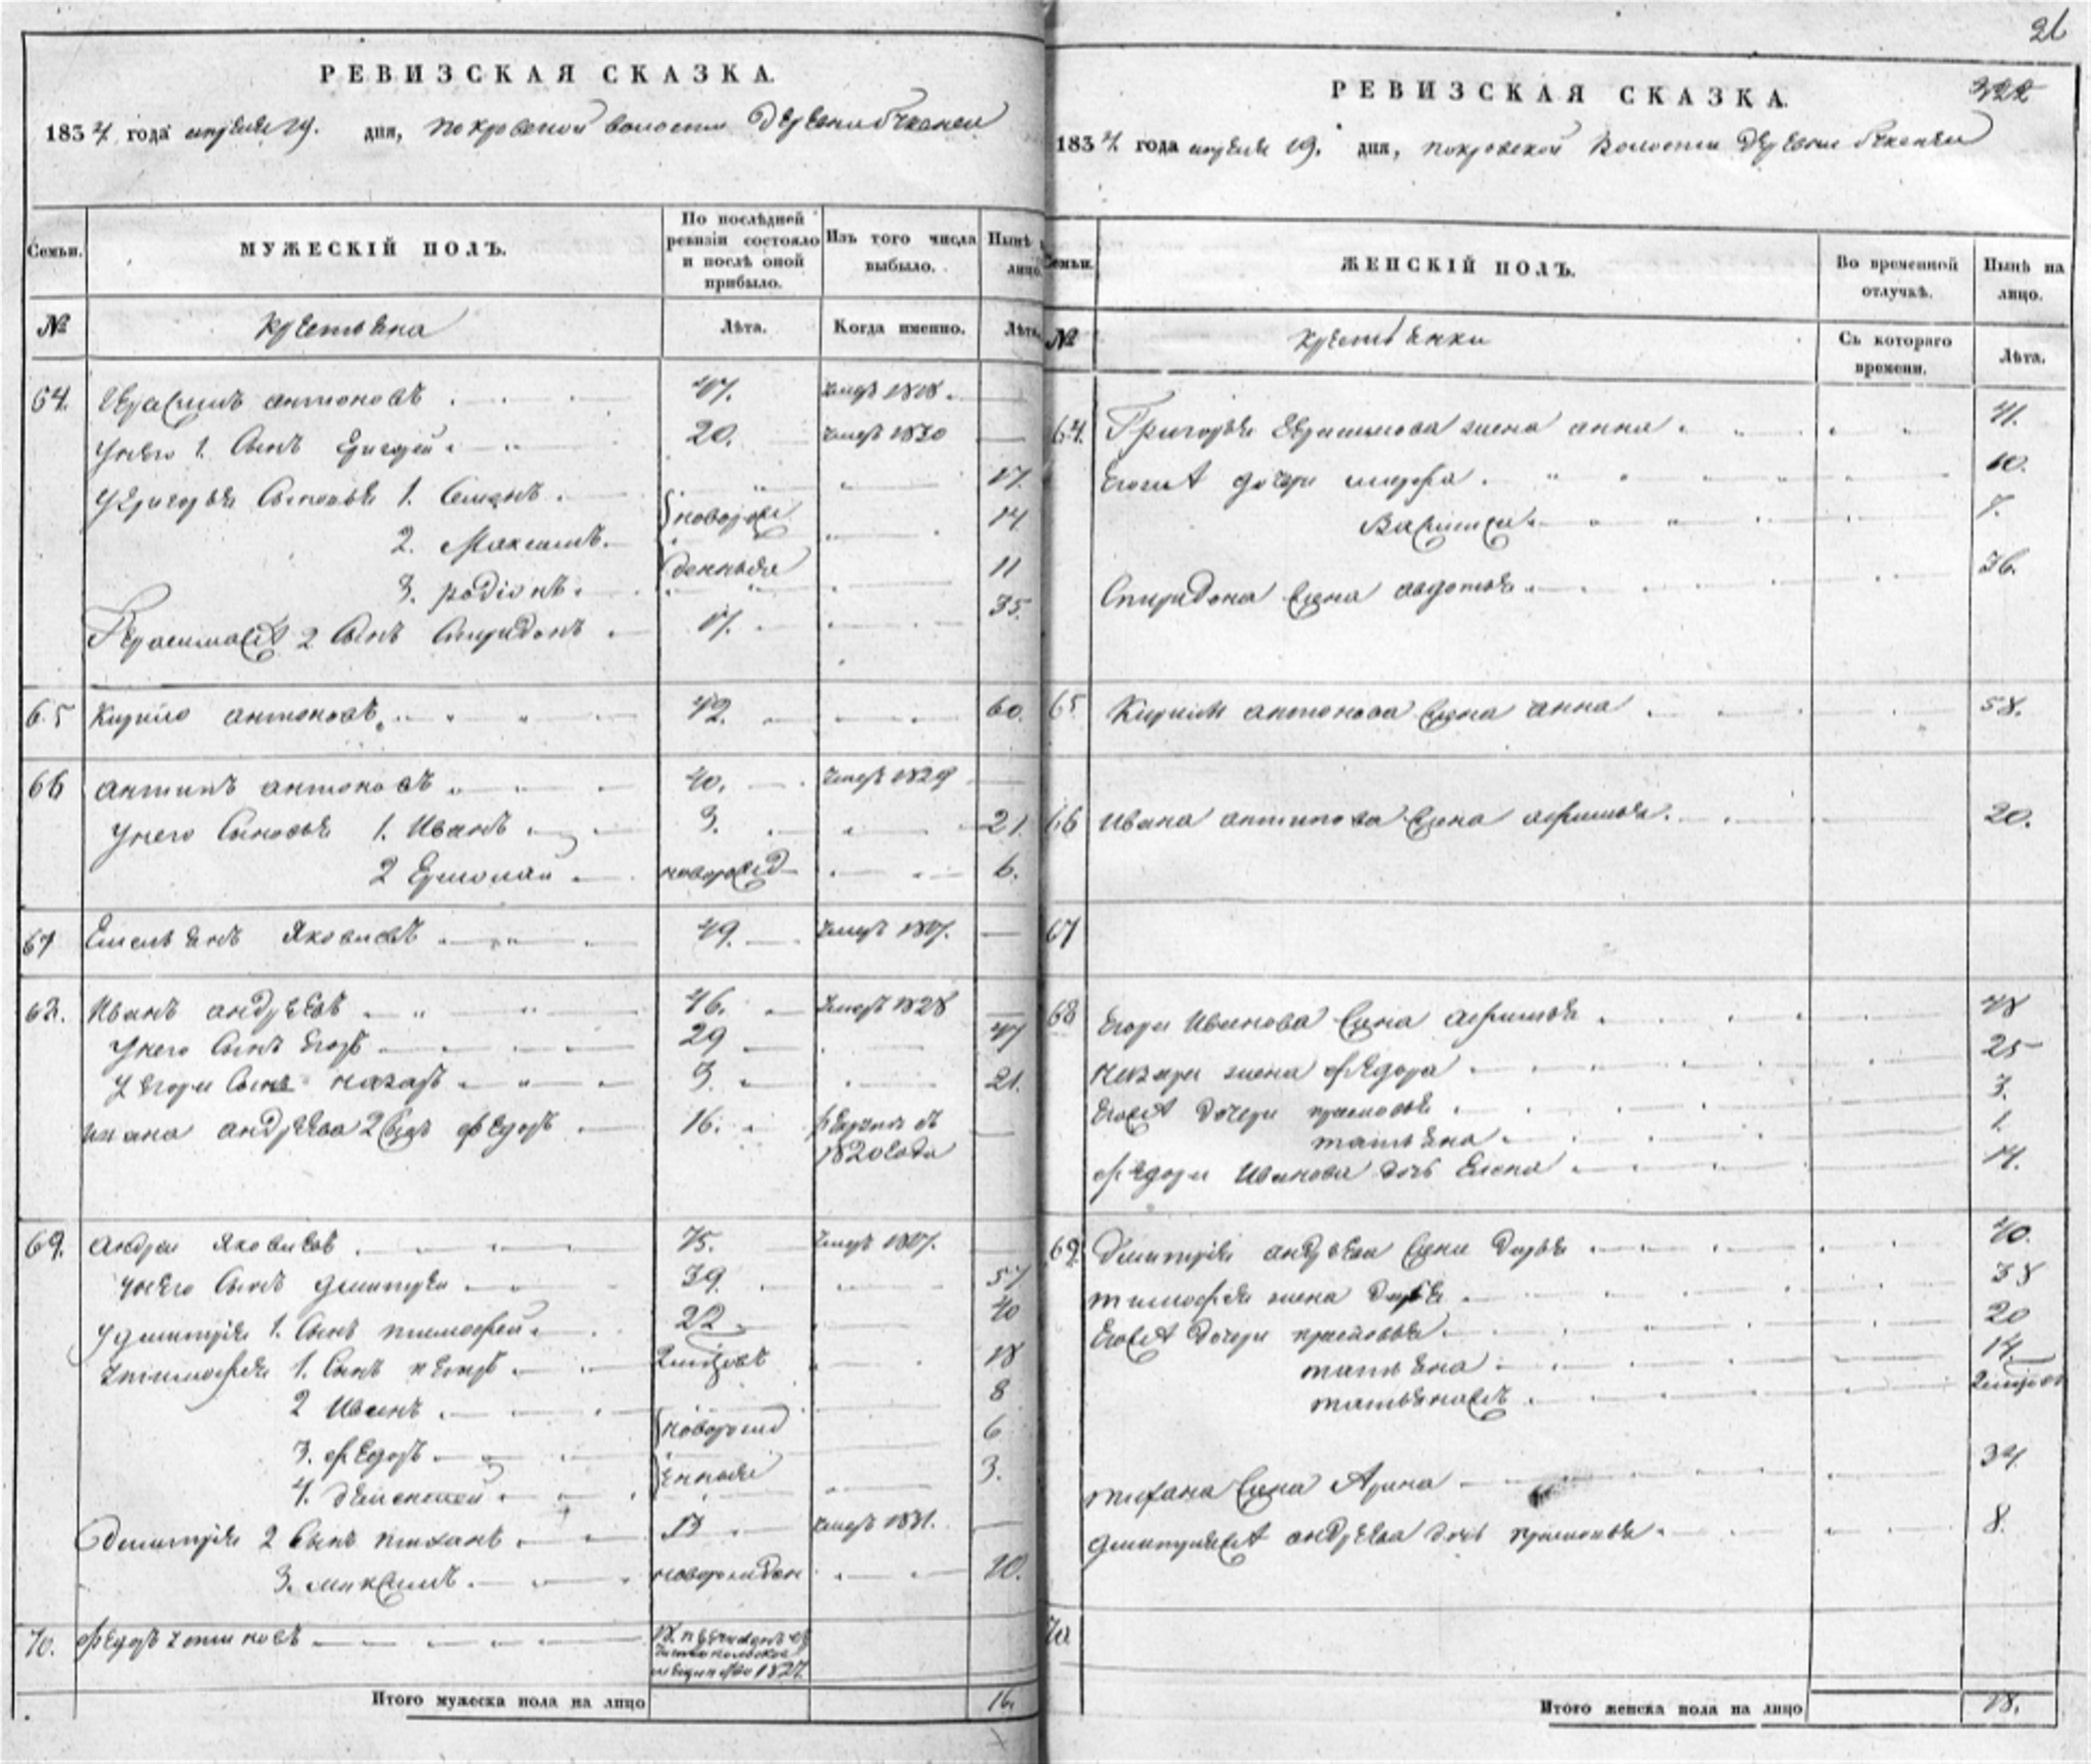 26
РЕВИЗСКАЯ СКАЗКА.
1834 года апреля 19. дня, покровской волости деревни
МУЖЕСКІЙ ПОЛЪ.
Семьи.
По послѣдней ревизіи состояло и послѣ оной прибыло.
Изъ того числа выбыло.
Нынѣ на лицо.
№
крестьяна
Лѣта.
Когда именно.
Лѣта.
64. Герасимъ антоновъ 47. умеръ 1818.
Унего 1. Сынъ Григорей 20. умеръ 1830
Угригорья Сыновья 1. Семенъ 17.
2. Максимъ. новорож 14
3. родіонъ. денныя 11
Герасима 2 Сынъ Спиридонъ 17. 35.
65 Кирило антоновъ 42. 60.
66 антипъ антоновъ 40. умеръ 1829
Унего Сыновья 1. Иванъ 3. 21.
2 Ермолай новорожд 6.
67 Емельянъ Яковлевъ 49. умеръ 1817.
68. Иванъ андреевъ 46. умеръ 1828
Унего Сынъ Егоръ 29 47
У Егора Сынъ назаръ 3. 21.
ивана андреева 2 Сынъ федоръ 16. 1820 года
69. андрей Яковлевъ 75. умеръ 1817.
Унего Сынъ дмитрей 39. 57
Удмитрія 1. Сынъ тимофей 22 40
Утимофея 1. Сынъ петръ 2 мѣсяцовъ 18
2 Иванъ 8
3. федоръ новорожд 6
4. дементей енныя 3.
Дмитрія 2 Сынъ тиханъ 13 умеръ 1831.
3. максимъ новорожден 10.
70. федоръ 18. 1827.
Итого мужеска пола на лицо 16.
322
РЕВИЗСКАЯ СКАЗКА.
1834. года апреля 19. дня, покровской Волости деревни
Семьи.
ЖЕНСКІЙ ПОЛЪ.
Во временной отлучкѣ.
Нынѣ на лицо.
№
крестьянки
Съ котораго времени.
Лѣта.
64. Григорья Герасимова жена анна 41.
Егожъ дочери марфа 10.
Василиса 7.
Спиридона жена авдотья 36.
65 Кирила антонова жена анна 58.
66 Ивана антипова жена афимья 20.
67
68 Егора Иванова жена афимья 48
назара жена федора 25
Егожъ дочери прасковья 3.
татьяна 1.
федора Иванова дочь Елена 14.
69. Дмитрія андреева жена дарья 40.
тимофея жена дарья 38
Егожъ дочери прасковья 20
татьяна 14
татьяна 2 мѣсяцов
тихана жена Арина 34
дмитрія андреева дочь прасковья 8.
70
Итого женска пола на лицо 18.